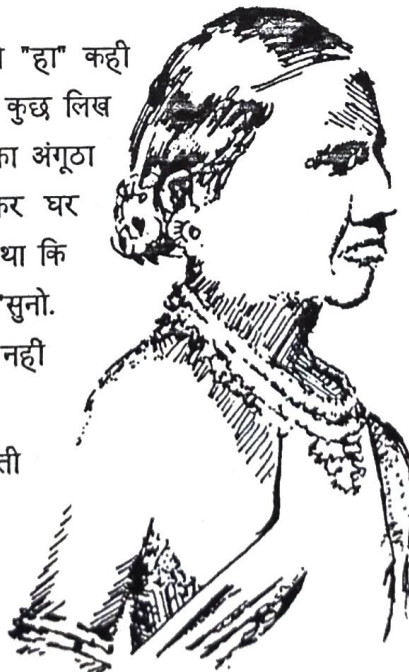 "हा" कही
कुछ लिख
का अंगूठा
कर घर
था कि
"सुनो.
नही
ती